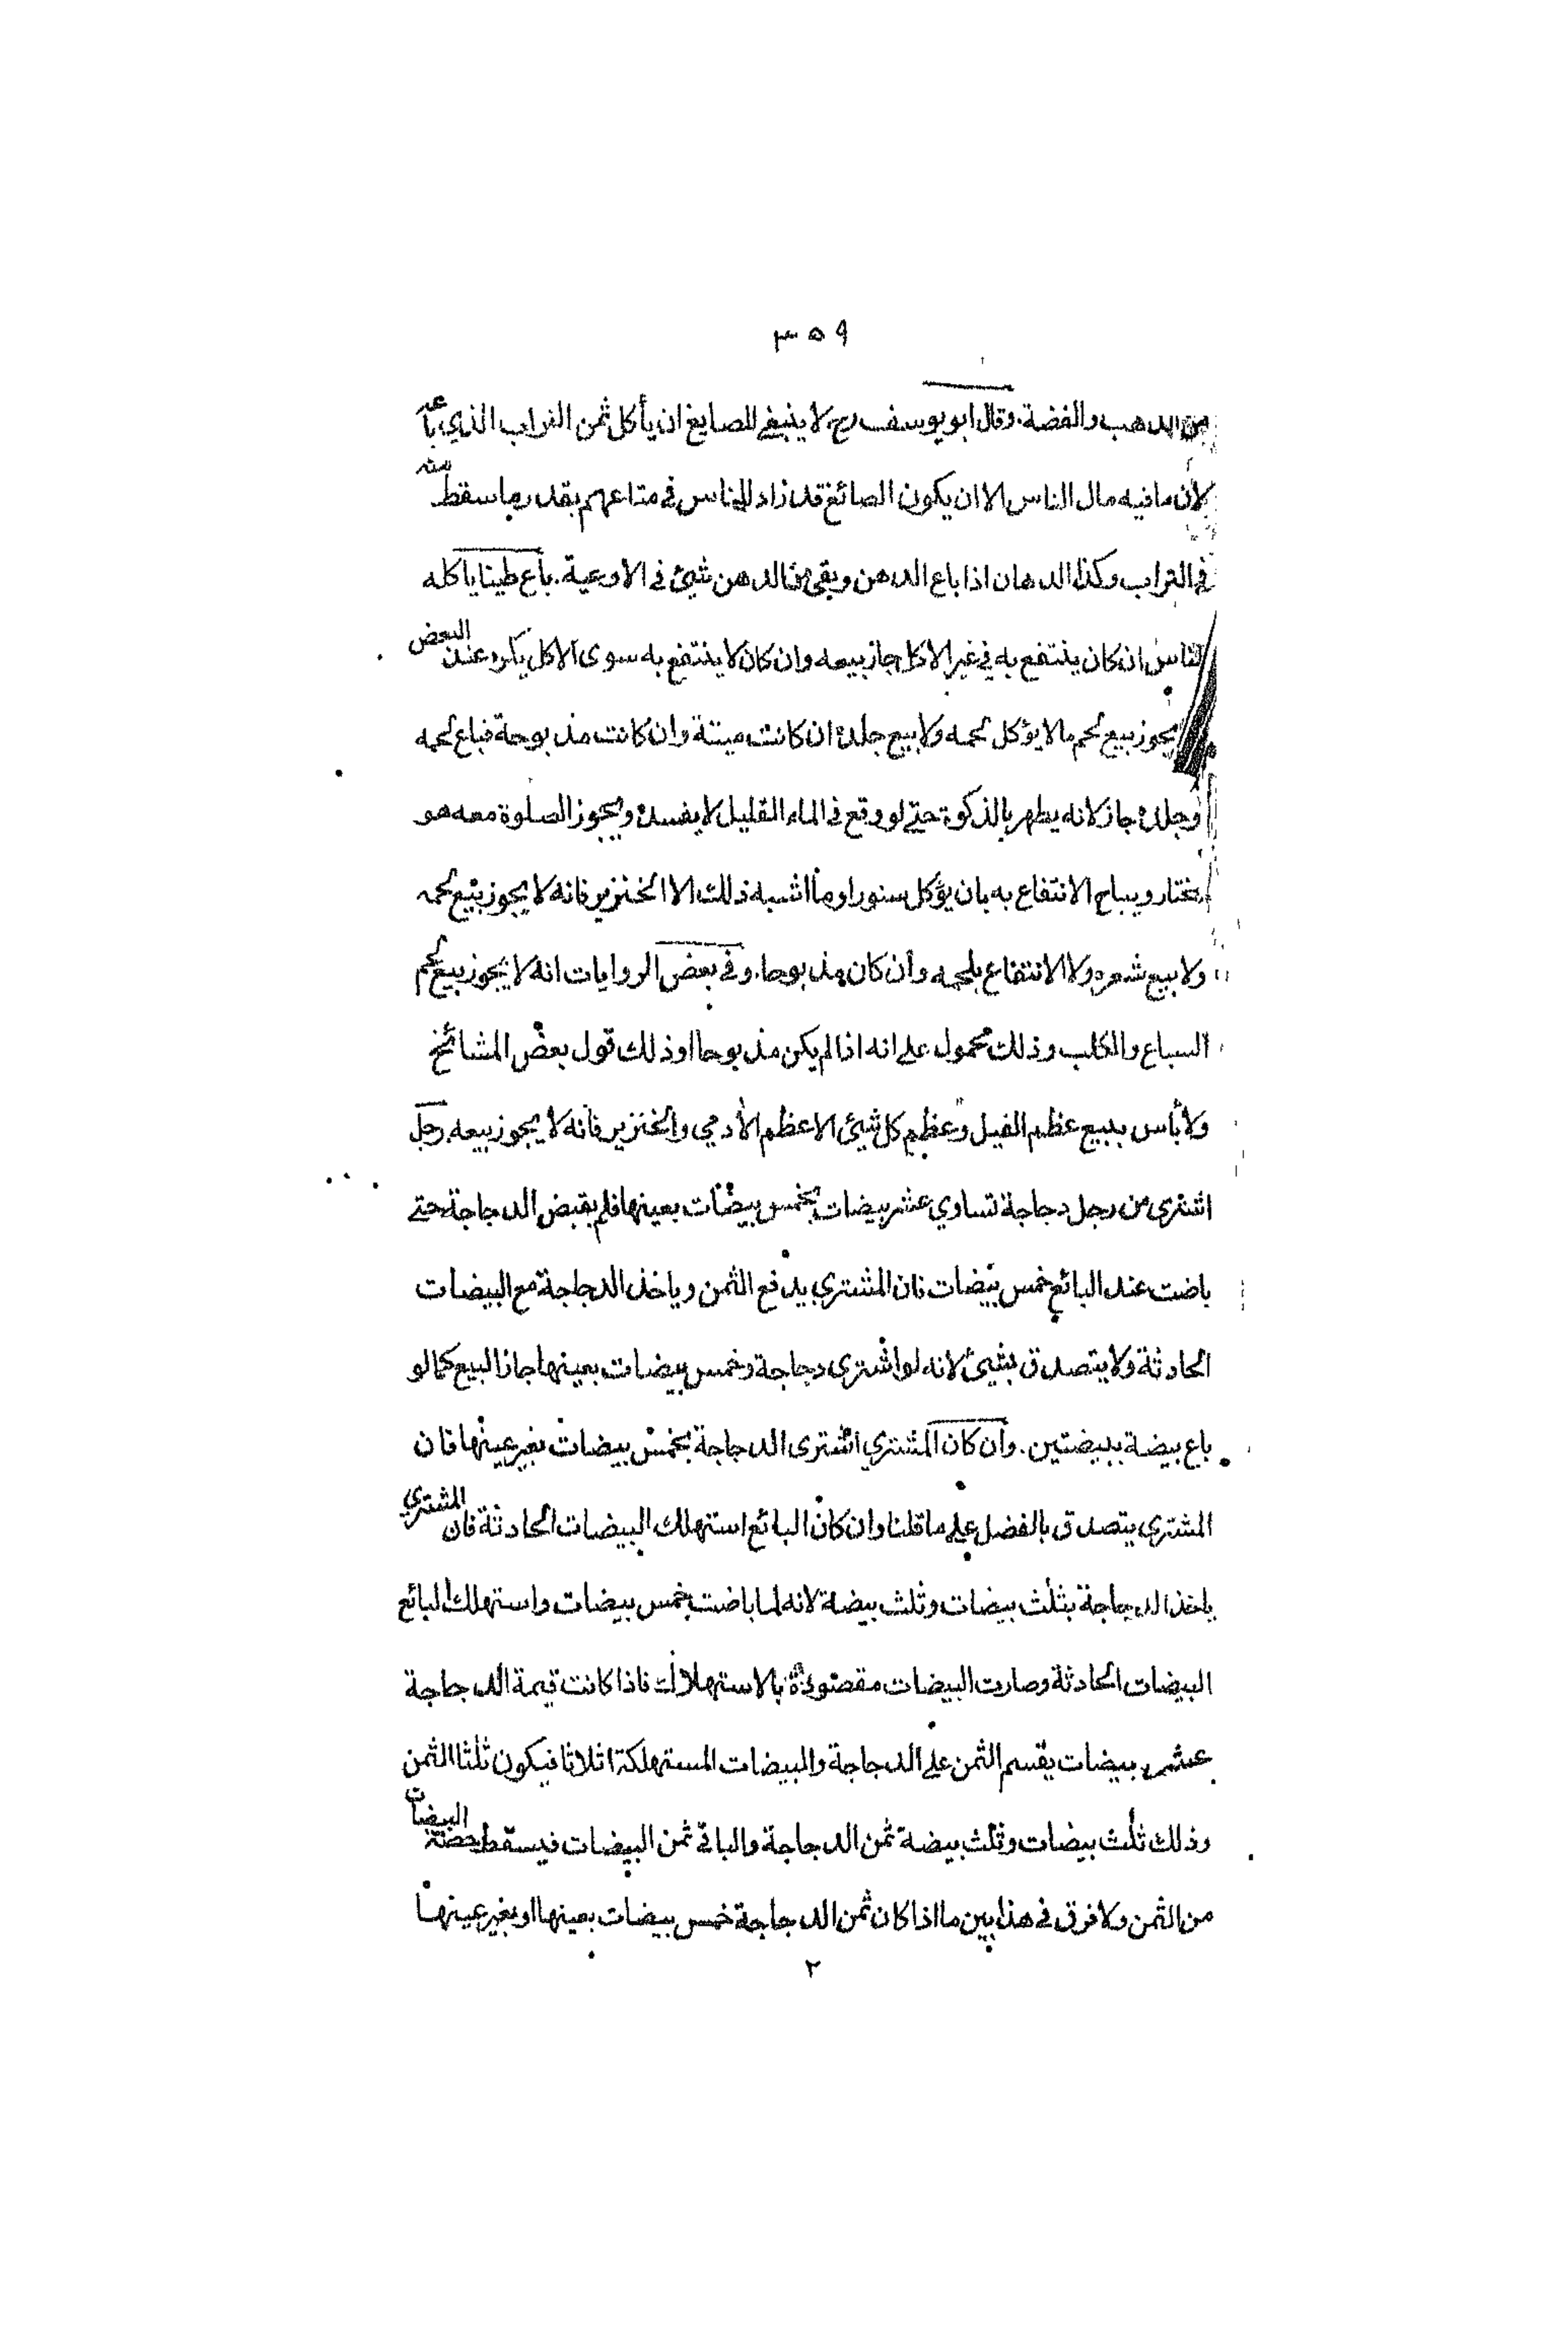 ٣٥٩
من الذهب والفضة. وقال ابو يوسف رح لا ينبغي للصايغ ان يأكل ثمن التراب الذي باعه
لأن ما فيه مال الناس الا ان يكون الصائغ قد زاد للناس في متاعهم بقدر ما سقط منه
في التراب وكذا الدهان اذا باع الدهن وبقي من الدهن شيئ في الاوعية. باع طينا ياكله
الناس ان كان ينتفع به في غير الاكل جاز بيعه وان كان لا ينتفع به سوى الاكل يكره عند البعض
يجوز بيع لحم ما لا يؤكل لحمه ولا بيع جلده ان كانت ميتة وان كانت مذبوحة فباع لحمه
وجلده جاز لانه يطهر بالذكوة حتى لو وقع في الماء القليل لا يفسده ويجوز الصلوة معه هو
مختار ويباح الانتفاع به بان يؤكل سنورا وما اشبه ذلك الا الخنزير فانه لا يجوز بيع لحمه
ولا بيع شعره ولا الانتفاع بلحمه وان كان مذبوحا. وفي بعض الروايات انه لا يجوز بيع لحم
السباع والكلب وذلك محمول على انه اذا لم يكن مذبوحا او ذلك قول بعض المشائخ
ولا بأس ببيع عظم الفيل وعظم كل شيئ الا عظم الآدمي والخنزير فانه لا يجوز بيعه. رجل
اشترى من رجل دجاجة تساوي عشر بيضات بخمس بيضات بعينها فلم يقبض الدجاجة حتى
باضت عند البائع خمس بيضات فان المشتري يدفع الثمن وياخذ الدجاجة مع البيضات
الحادثة ولا يتصدق بشيئ لانه لو اشترى دجاجة وخمس بيضات بعينها جاز البيع كما لو
باع بيضة ببيضتين. وان كان المشتري اشترى الدجاجة بخمس بيضات بغير عينها فان
المشتري يتصدق بالفضل على ما قلنا وان كان البائع استهلك البيضات الحادثة فان المشتري
ياخذ الدجاجة بثلث بيضات وثلث بيضة لانه لما باضت خمس بيضات واستهلك البائع
البيضات الحادثة وصارت البيضات مقصودة بالاستهلاك فاذا كانت قيمة الدجاجة
عشر بيضات يقسم الثمن على الدجاجة والبيضات المستهلكة اثلاثا فيكون ثلثا الثمن
وذلك ثلث بيضات وثلث بيضة ثمن الدجاجة والباقي ثمن البيضات فيسقط حصة البيضات
من الثمن ولا فرق في هذا بين ما اذا كان ثمن الدجاجة خمس بيضات بعينها او بغير عينها
٢